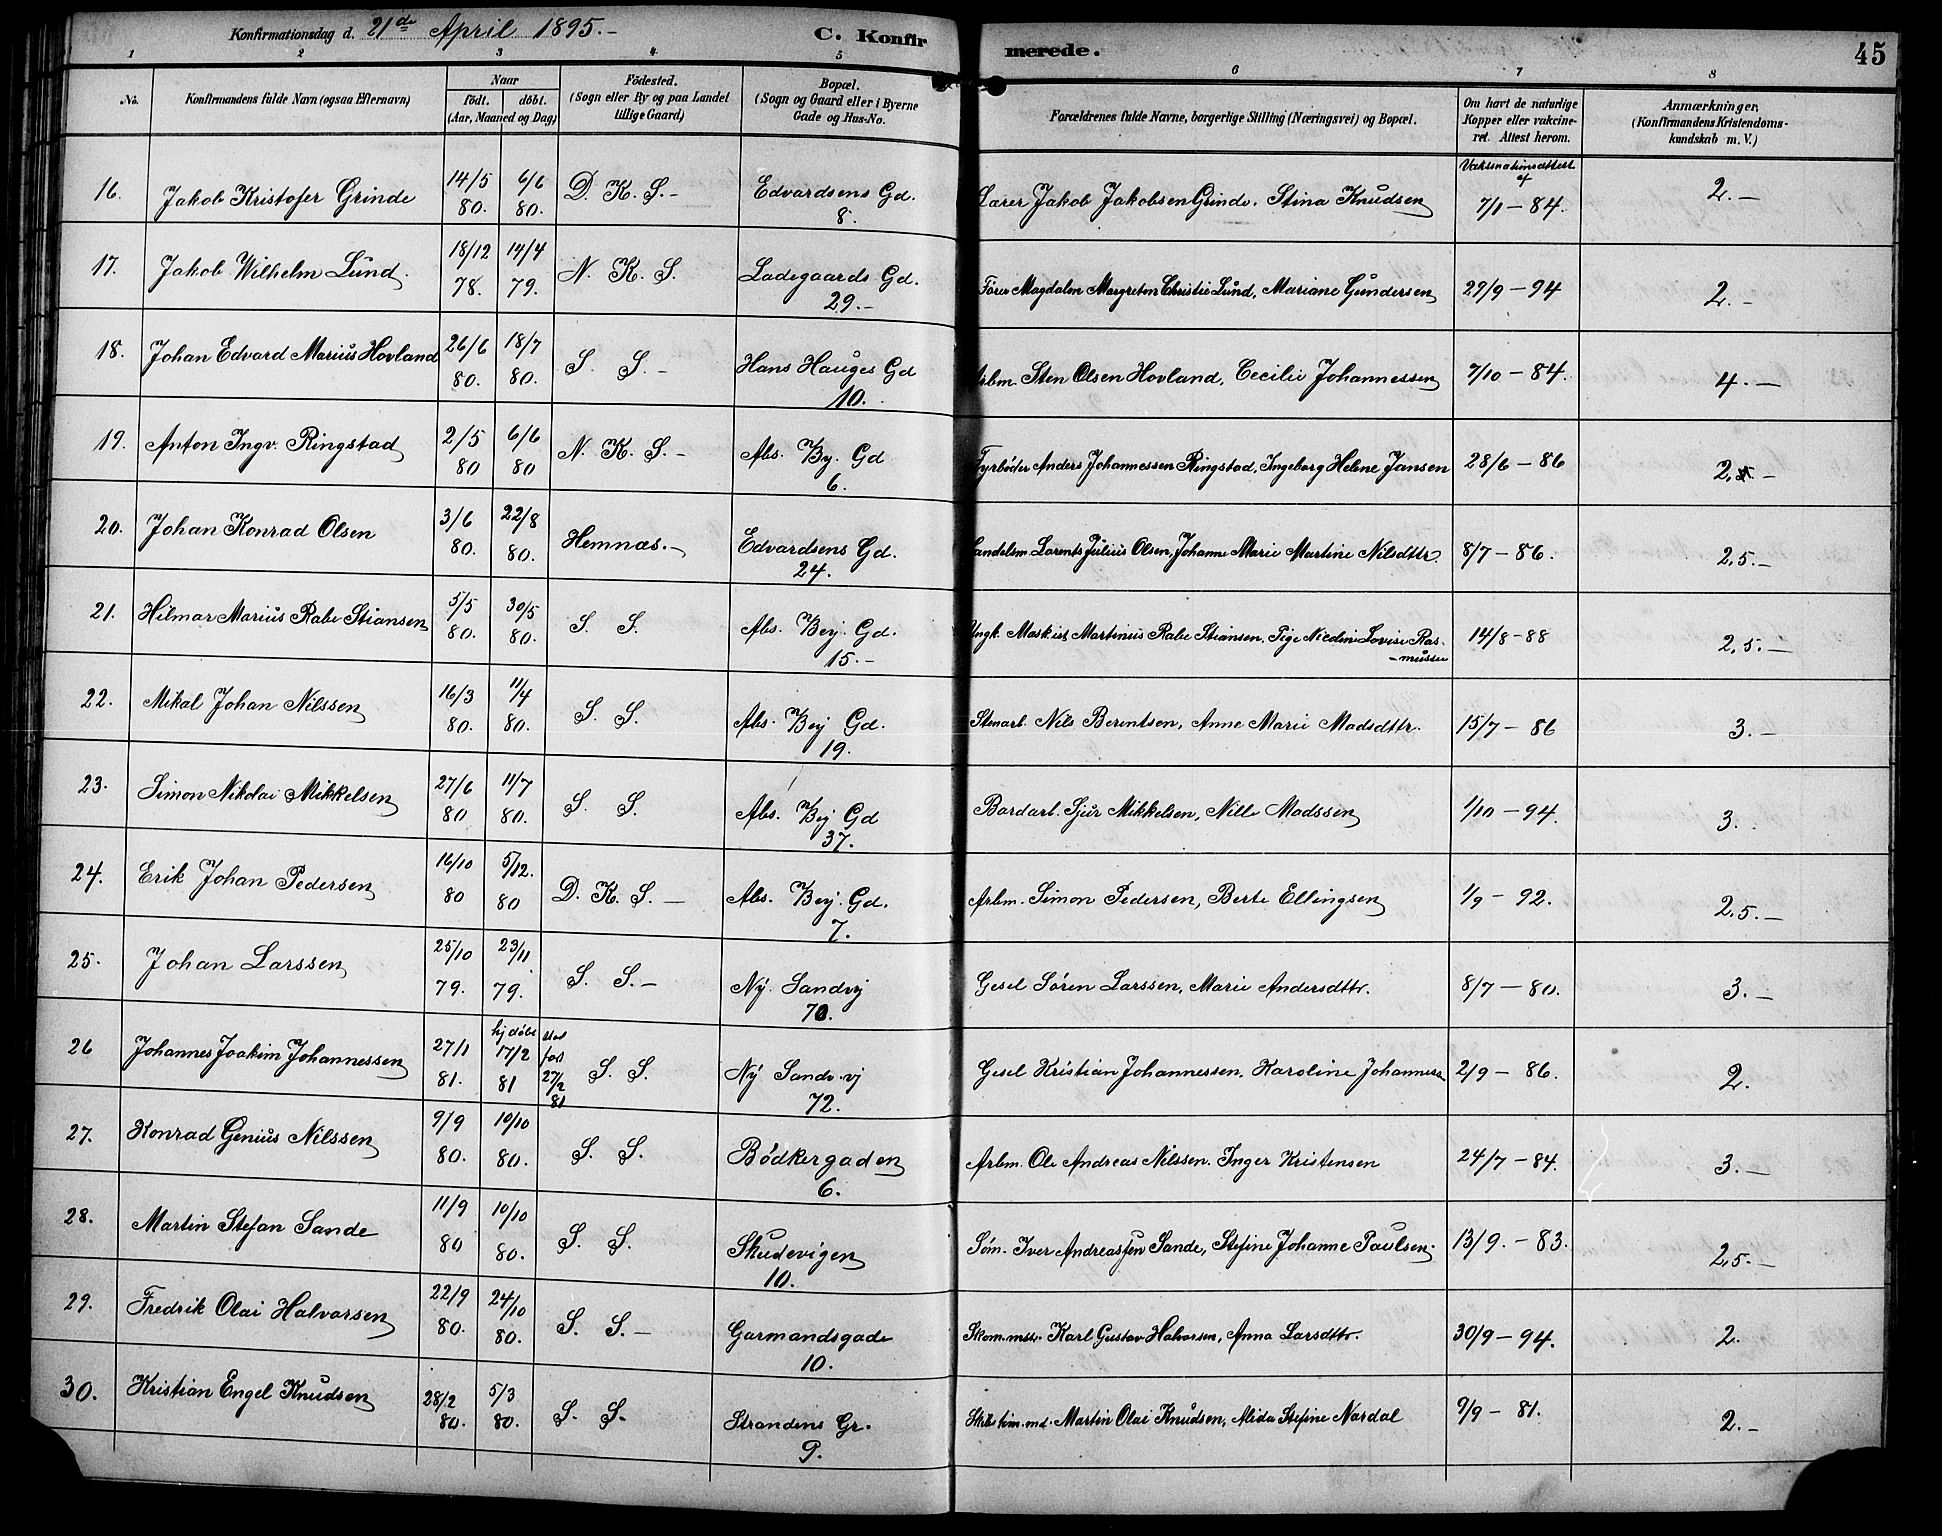 Konfirmationsdag d. 21de April 1895.-
C. Konfirmerede.
45
1 2 3 4 5 6 7 8
No.
Konfirmandens fulde Navn (ogsaa Efternavn)
Naar
födt. döbt.
(Aar, Maaned og Dag)
Födested.
(Sogn eller By og paa Landet
tillige Gaard)
Bopæl.
(Sogn og Gaard eller i Byerne
Gade og Hus-No.
Forældrenes fulde Navne, borgerlige Stilling (Næringsvei) og Bopæl.
Om havt de naturlige
Kopper eller vakcine-
ret. Attest herom.
Anmærkninger.
(Konfirmandens Kristendoms-
kundskab m. V.)
Vaksinationsattest
af
16. Jakob Kristofer Grinde 14/5 80. 6/6 80. D. K. S.- Edvardsens Gd. 8. Lærer Jakob Jakobsen Grinde. Stina Knudsen 7/1 - 84. 2.-
17. Jakob Wilhelm Lund. 18/12 78. 14/4 79. N. K. S. Ladegaards Gd. 29.- Fører Magdalon Margreton Christie Lund, Mariane Gundersen 29/9 - 94 2.-
18. Johan Edvard Marius Hovland 26/6 80. 18/7 80. S. S.- Hans Hauges Gd 10. Arbm. Sten Olsen Hovland, Cecilie Johannessen 7/10 - 84. 4.-
19. Anton Ingv. Ringstad 2/5 80 6/6 80 N. K. S.- Abs. Bej. Gd 6. Fyrbøder Anders Johannessen Ringstad, Ingeborg Helene Jansen 28/6 - 86 2,5-
20. Johan Konrad Olsen 3/6 80. 22/8 80. Hemnæs.- Edvardsens Gd. 24. Handelsm. Lorents Julius Olsen, Johanne Marie Martine Nilsdttr. 8/7 - 86. 2,5.-
21. Hilmar Marius Rabe Stiansen 5/5 80. 30/5 80. S. S. Abs. Bej. Gd. 15.- Ungk. Maskist Martinus Rabe Stiansen, Pige Nicoline Lovise Ras-
-mussen 14/8-88 2,5.-
22. Mikal Johan Nilssen 16/3 80. 11/4 80. S. S. Abs. Bej Gd. 19. Stenarb. Nils Berentsen, Anne Marie Madsdttr. 15/7 - 86 3.-
23. Simon Nikolai Mikkelsen 27/6 80 11/7 80. S. S. Abs. Bej Gd 37. Bordarb. Sjur Mikkelsen, Nille Madssen 1/10 - 94. 3.
24. Erik Johan Pedersen 16/10 80 5/12. 80 D. K. S.- Abs. Bej. Gd. 7. Arbm. Simon Pedersen, Berte Ellingsen 1/9 - 92. 2,5.-
25. Johan Larssen 25/10 79. 23/11 79. S. S.- Ny. Sandvj 70. Gesel Søren Larssen, Marie Andersdttr. 8/7 - 80. 3.-
26 Johannes Joakim Johannessen 27/1 81. hj døbt 17/2 81 27/2 81 S. S. Ny Sandv.vj 72. Gesel Kristian Johannessen. Karoline Johannessen 2/9 - 86. 2.
27. Konrad Genius Nilssen 9/9 80. 10/10 80. S. S. Bödkergaden 6. Arbm. Ole Andreas Nilssen. Inger Kristensen 24/7 - 84. 3.-
28. Martin Stefan Sande 11/9 80 10/10 80. S. S. Skudevigen 10. Søm. Iver Andreassen Sande, Stefine Johanne Paulsen. 13/9. - 83. 2,5.-
29. Fredrik Olai Halvorsen 22/9 80. 24/10 80. S. S.- Garmandsgade 10. Skom.mstr. Karl Gustav Halvorsen, Anna Larsdttr. 30/9 - 94. 2.
30. Kristian Engel Knudsen 28/2 80. 5/3 80. S. S. Strandens Gr. 9. Martin Olai Knudsen, Alida Stefine Nordal 9/9 - 81. 2.-